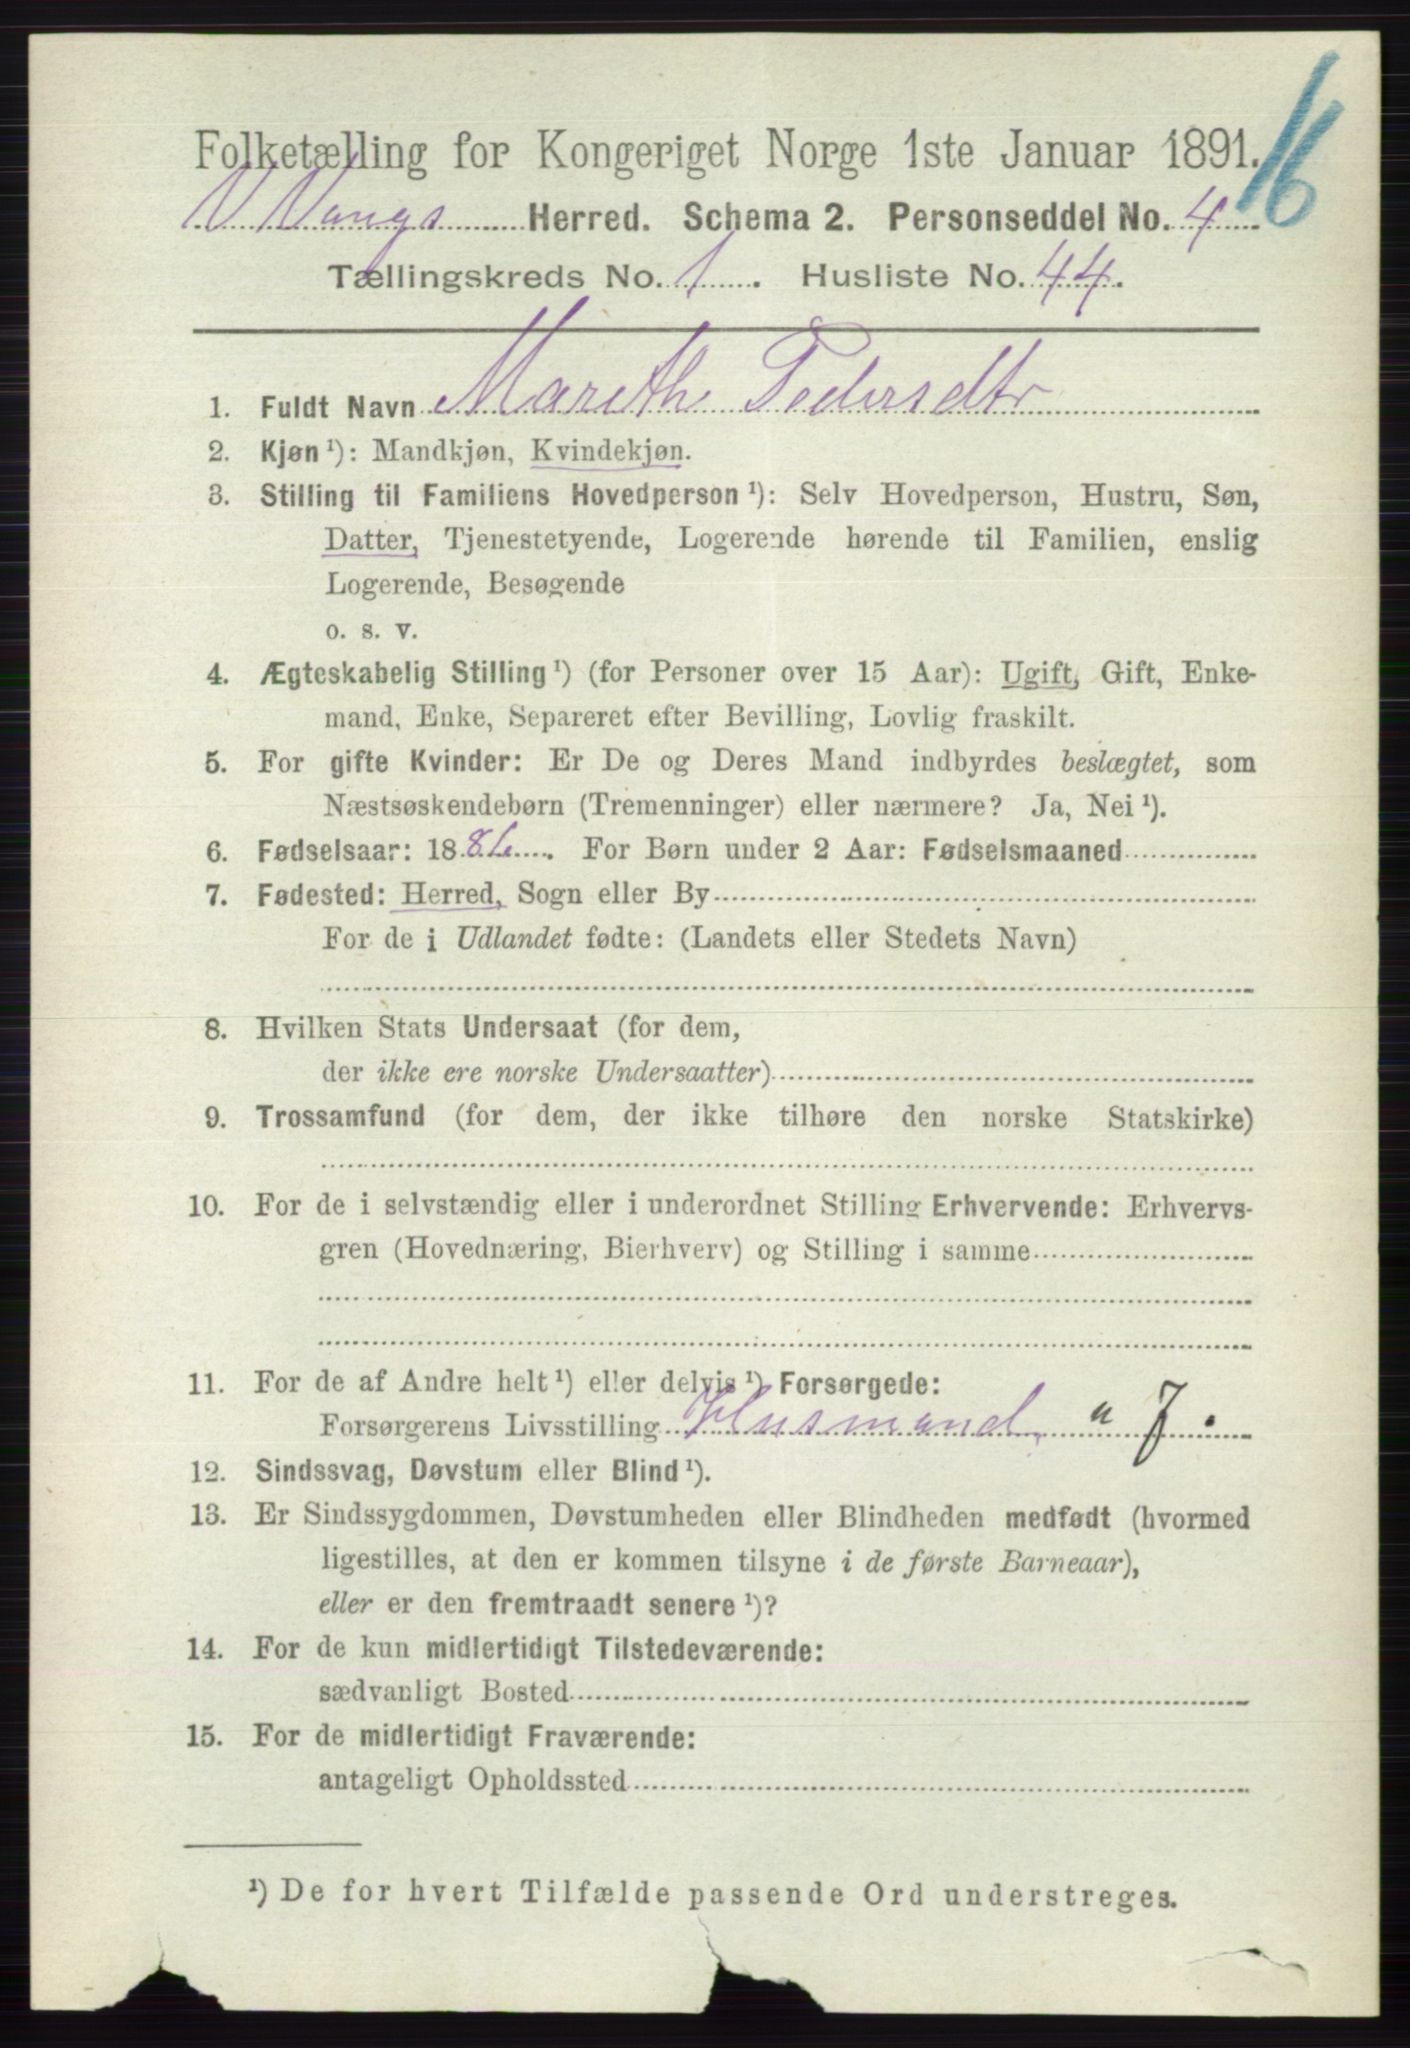 16
Folketælling for Kongeriget Norge 1ste Januar 1891.
V Vangs Herred. Schema 2. Personseddel No. 4
Tællingskreds No. 1. Husliste No. 44.
1. Fuldt Navn Marethe Pedersdtr
2. Kjøn ¹): Mandkjøn, Kvindekjøn.
3. Stilling til Familiens Hovedperson ¹): Selv Hovedperson, Hustru, Søn,
Datter, Tjenestetyende, Logerende hørende til Familien, enslig
Logerende, Besøgende
o. s. v.
4. Ægteskabelig Stilling ¹) (for Personer over 15 Aar): Ugift, Gift, Enke-
mand, Enke, Separeret efter Bevilling, Lovlig fraskilt.
5. For gifte Kvinder: Er De og Deres Mand indbyrdes beslægtet, som
Næstsøskendebørn (Tremenninger) eller nærmere? Ja, Nei ¹).
6. Fødselsaar: 1886. For Børn under 2 Aar: Fødselsmaaned
7. Fødested: Herred, Sogn eller By
For de i Udlandet fødte: (Landets eller Stedets Navn)
8. Hvilken Stats Undersaat (for dem,
der ikke ere norske Undersaatter)
9. Trossamfund (for dem, der ikke tilhøre den norske Statskirke)
10. For de i selvstændig eller i underordnet Stilling Erhvervende: Erhvervs-
gren (Hovednæring, Bierhverv) og Stilling i samme
11. For de af Andre helt ¹) eller delvis ¹) Forsørgede:
Forsørgerens Livsstilling Husmand " J.
12. Sindssvag, Døvstum eller Blind ¹).
13. Er Sindssygdommen, Døvstumheden eller Blindheden medfødt (hvormed
ligestilles, at den er kommen tilsyne i de første Barneaar),
eller er den fremtraadt senere ¹)?
14. For de kun midlertidigt Tilstedeværende:
sædvanligt Bosted
15. For de midlertidigt Fraværende:
antageligt Opholdssted
¹) De for hvert Tilfælde passende Ord understreges.